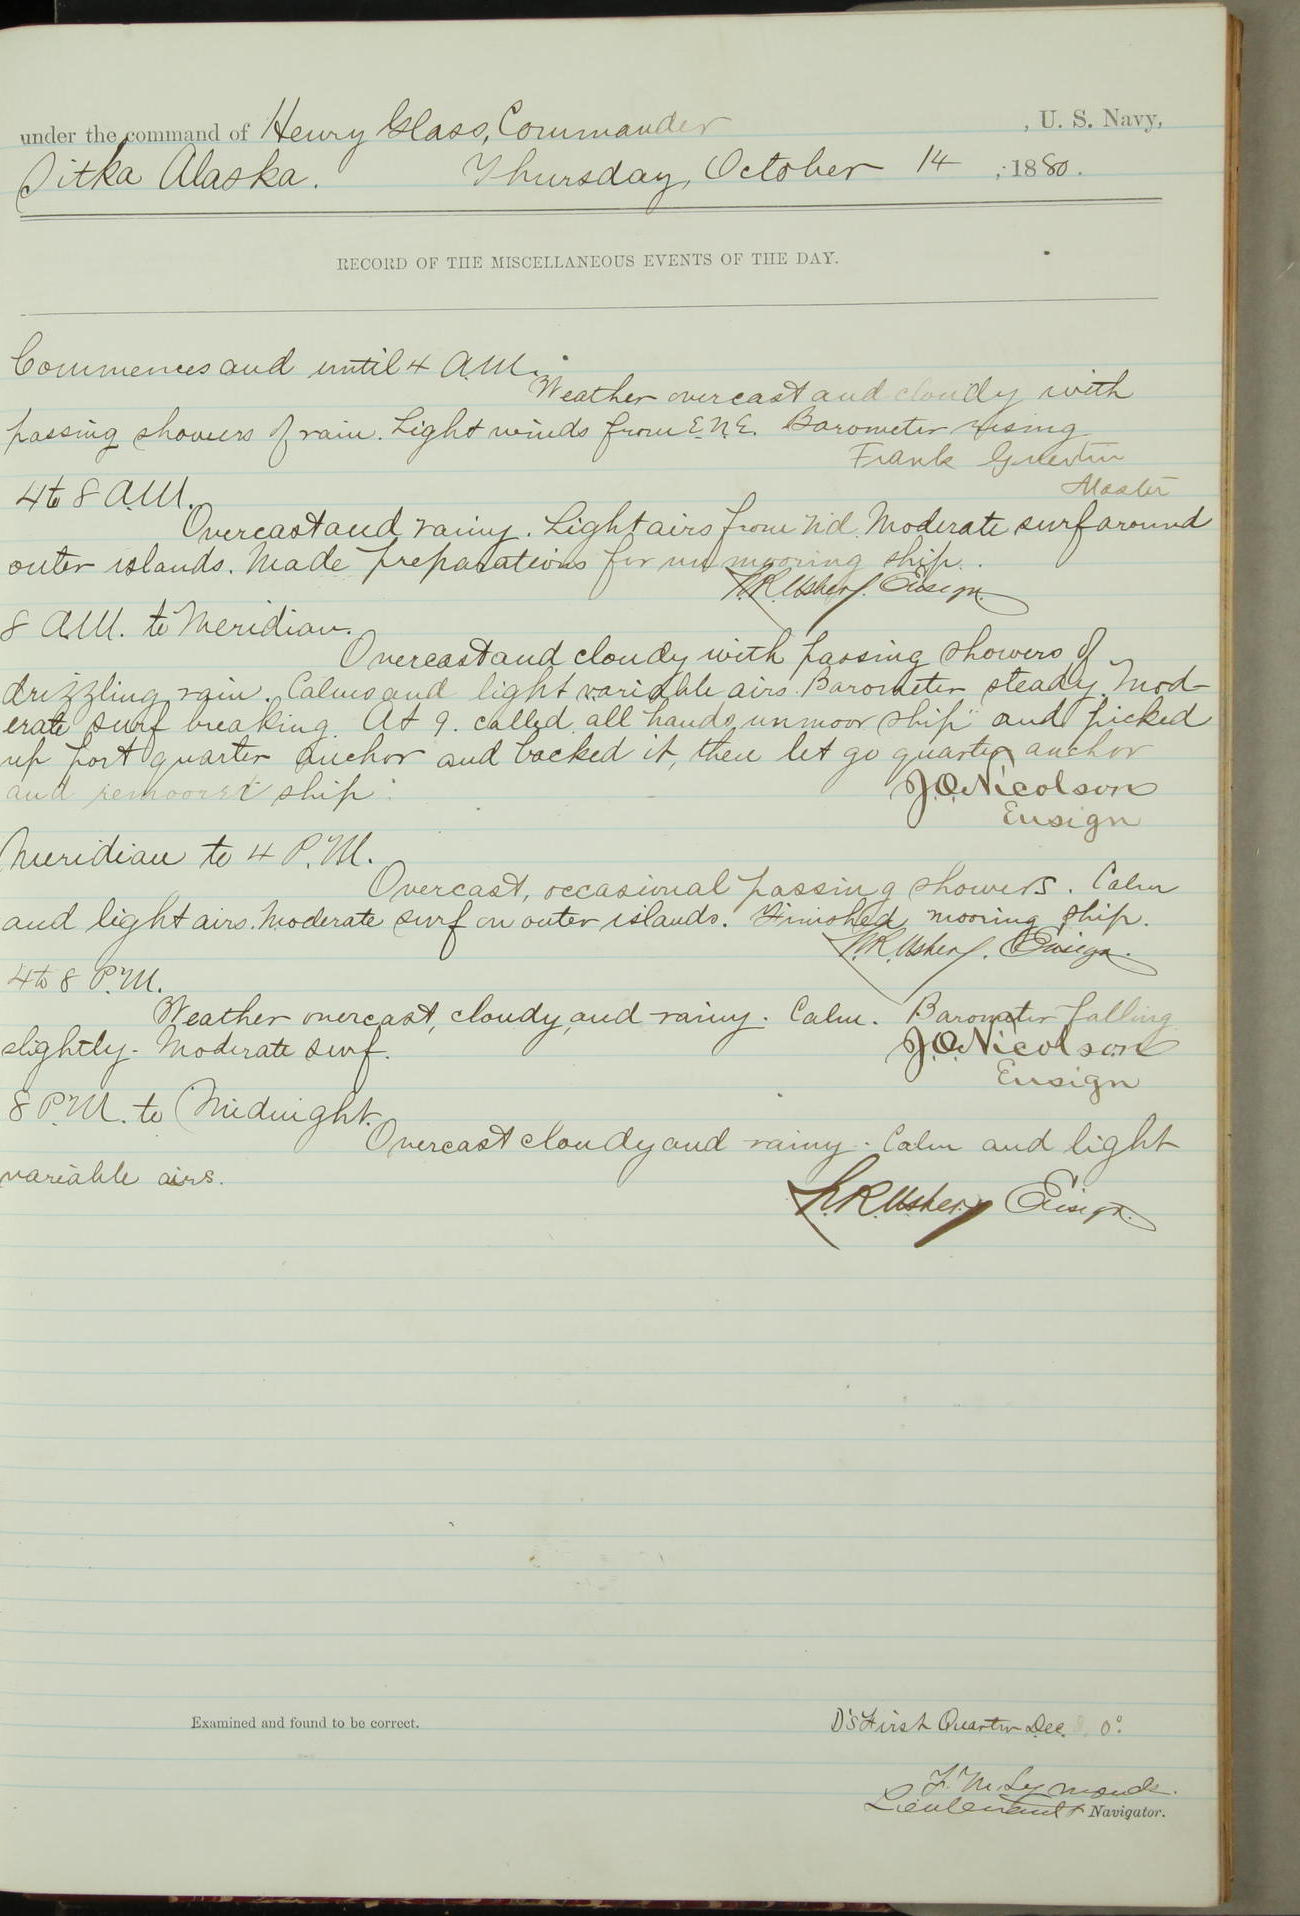 under the command of Henry Glass, Commander , U. S. Navy,
Sitka Alaska. Thursday, October 14 , 1880.
RECORD OF THE MISCELLANEOUS EVENTS OF THE DAY.
Commences and until 4 A.M.
Weather overcast and cloudy with
passing showers of rain. Light winds from E.N.E. Barometer rising
Frank Guertin
Master
4 to 8 A.M.
Overcast and rainy. Light airs from N'd. Moderate surf around
outer islands. Made preparations for unmooring ship.
N.R. Usher, Ensign.
8 A.M. to Meridian.
Overcast and cloudy with passing showers of
drizzling rain. Calms and light variable airs. Barometer steady. Mod-
erate surf breaking. At 9. called all hands, unmoor ship" and picked
up port quarter anchor and backed it, then let go quarter anchor
and remoored ship.
J.O. Nicolson
Ensign
Meridian to 4 P.M.
Overcast, occasional passing showers. Calm
and light airs. Moderate surf on outer islands. Finished mooring ship.
N.R. Usher, Ensign.
4 to 8 P.M.
Weather overcast, cloudy and rainy. Calm. Barometer falling
slightly. Moderate surf.
J.O. Nicolson
Ensign
8 P.M. to Midnight.
Overcast cloudy and rainy. Calm and light
variable airs.
N.R. Usher, Ensign.
Examined and found to be correct.
D's First Quarter Dec. 0°.
F. M. Symonds.
Lieutenant Navigator.